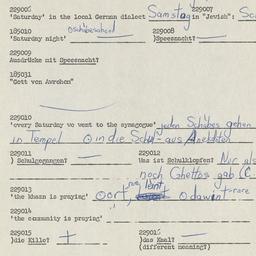 229006 229007
'Saturday' in the local German dialect Samstag in "Jewish": Sc
185010 229008
'Saturday night' )Speesnacht?
229009
Ausdrücke mit Speesnacht?
185031
"Gott von Awrohom"
229010
'every Saturday we went to the synagogue' jeden Schabes gehen
in Tempel in die Schul aus Anekdoten
229011 229012
) Schulgegangen? — Was ist Schulklopfen? Nur als
noch Ghettos gab (C
229013
'the khazn is praying' oort, nie dawnt rare
229014
'the community is praying'
229015 229016
)die Kille? + )das Kaal? —
(different meaning?)